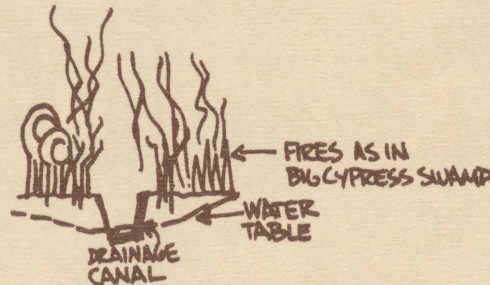 FIRES AS IN
BIG CYPRESS SWAMP
WATER
TABLE
DRAINAGE
CANAL